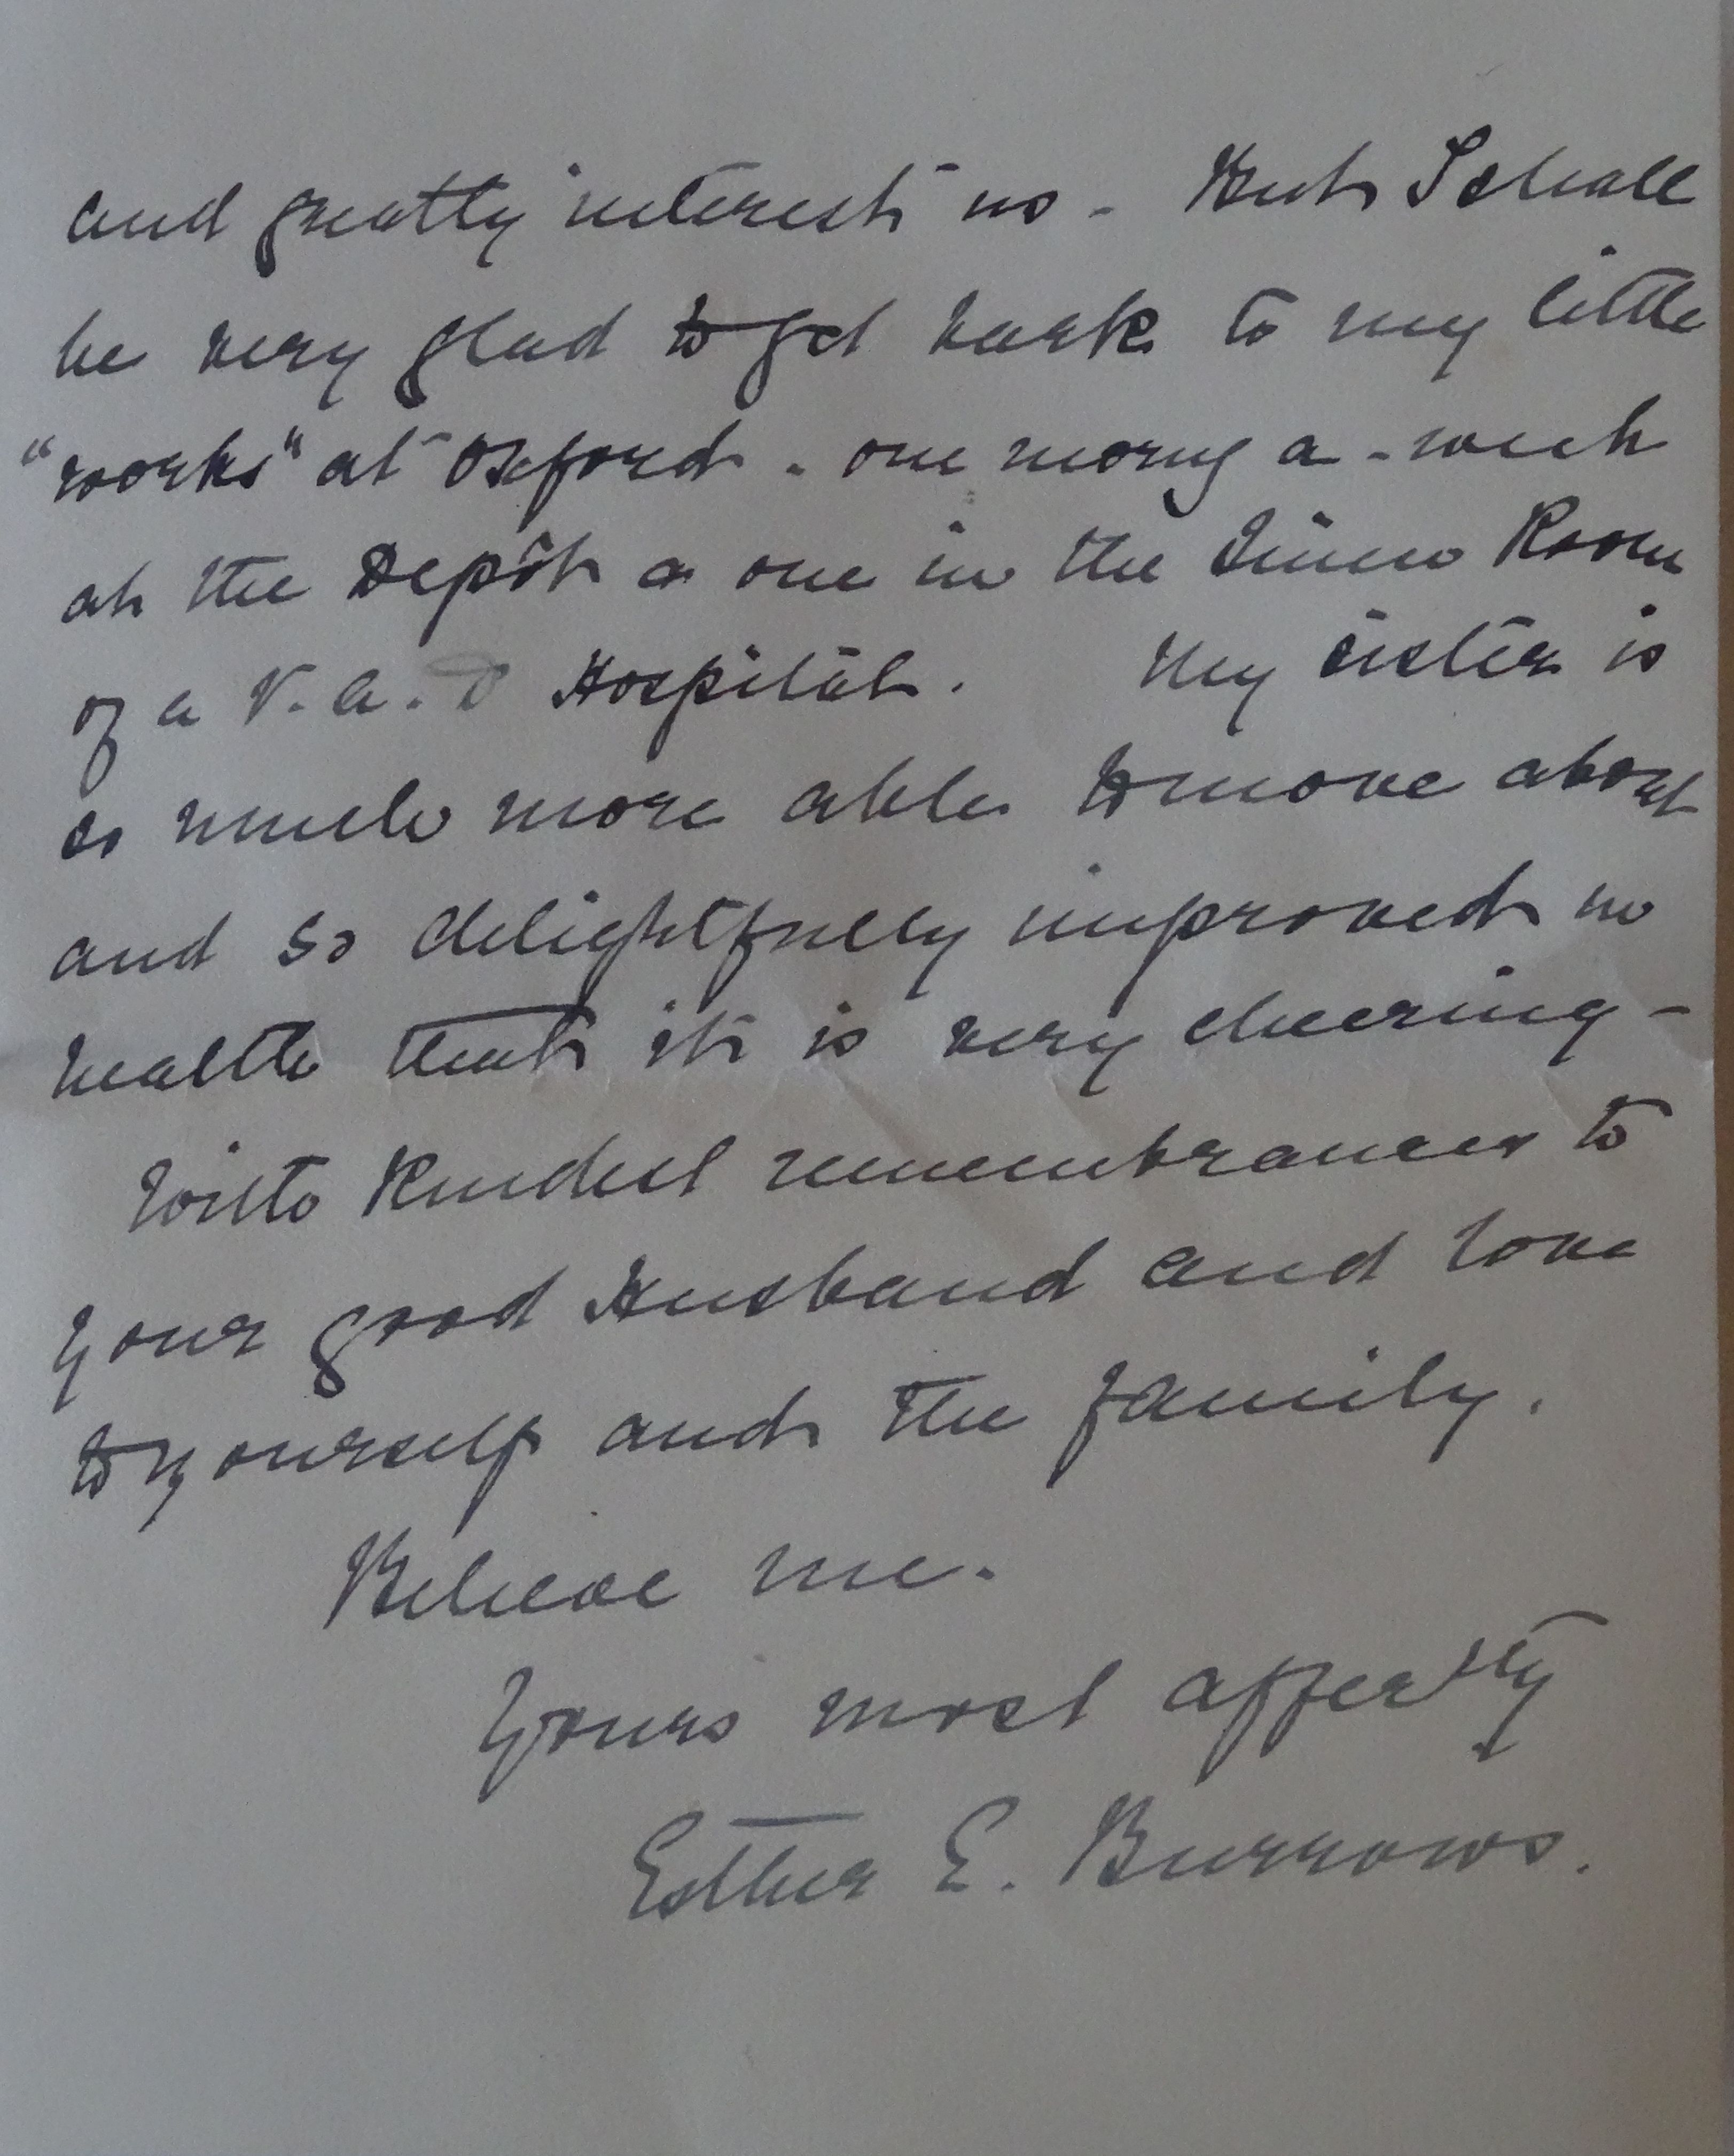 and greatly interest us - But I shall
be very glad to get back to my little
"works" at Oxford - one morng a-week
at the Depôt & one in the Linen Room
of a V.A.D Hospital. My sister is
so much more able to move about
and so delightfully improved in
health that it is very cheering -
With kindest remembrances to
your good Husband and love
to yourself and the family.
Believe me.
Yours most affectly
Esther E. Burrows.